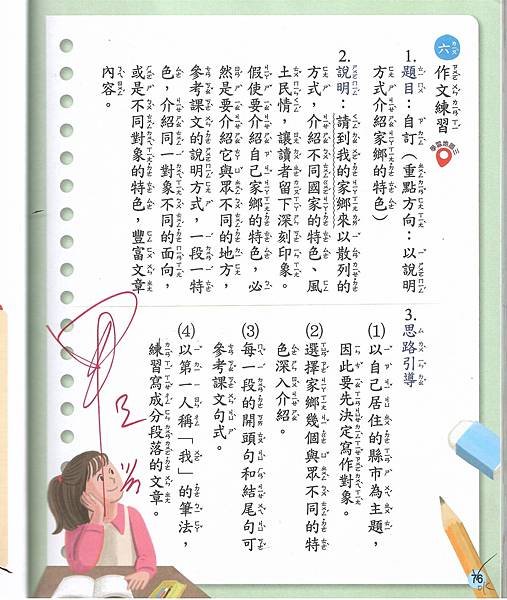 六 作文練習
學習地圖三
1. 題目：自訂（重點方向：以說明
方式介紹家鄉的特色）
2. 說明：請到我的家鄉來以散列的
方式，介紹不同國家的特色、風
土民情，讓讀者留下深刻印象。
假使要介紹自己家鄉的特色，必
然是要介紹它與眾不同的地方，
參考課文的說明方式，一段一特
色，介紹同一對象不同的面向，
或是不同對象的特色，豐富文章
內容。
3. 思路引導
(1)以自己居住的縣市為主題，
因此要先決定寫作對象。
(2)選擇家鄉幾個與眾不同的特
色深入介紹。
(3)每一段的開頭句和結尾句可
參考課文句式。
(4)以第一人稱「我」的筆法，
練習寫成分段落的文章。
76